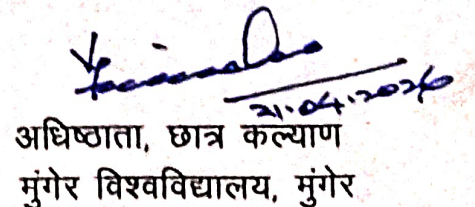 21.04.2026
अधिष्ठाता, छात्र कल्याण
मुंगेर विश्वविद्यालय, मुंगेर